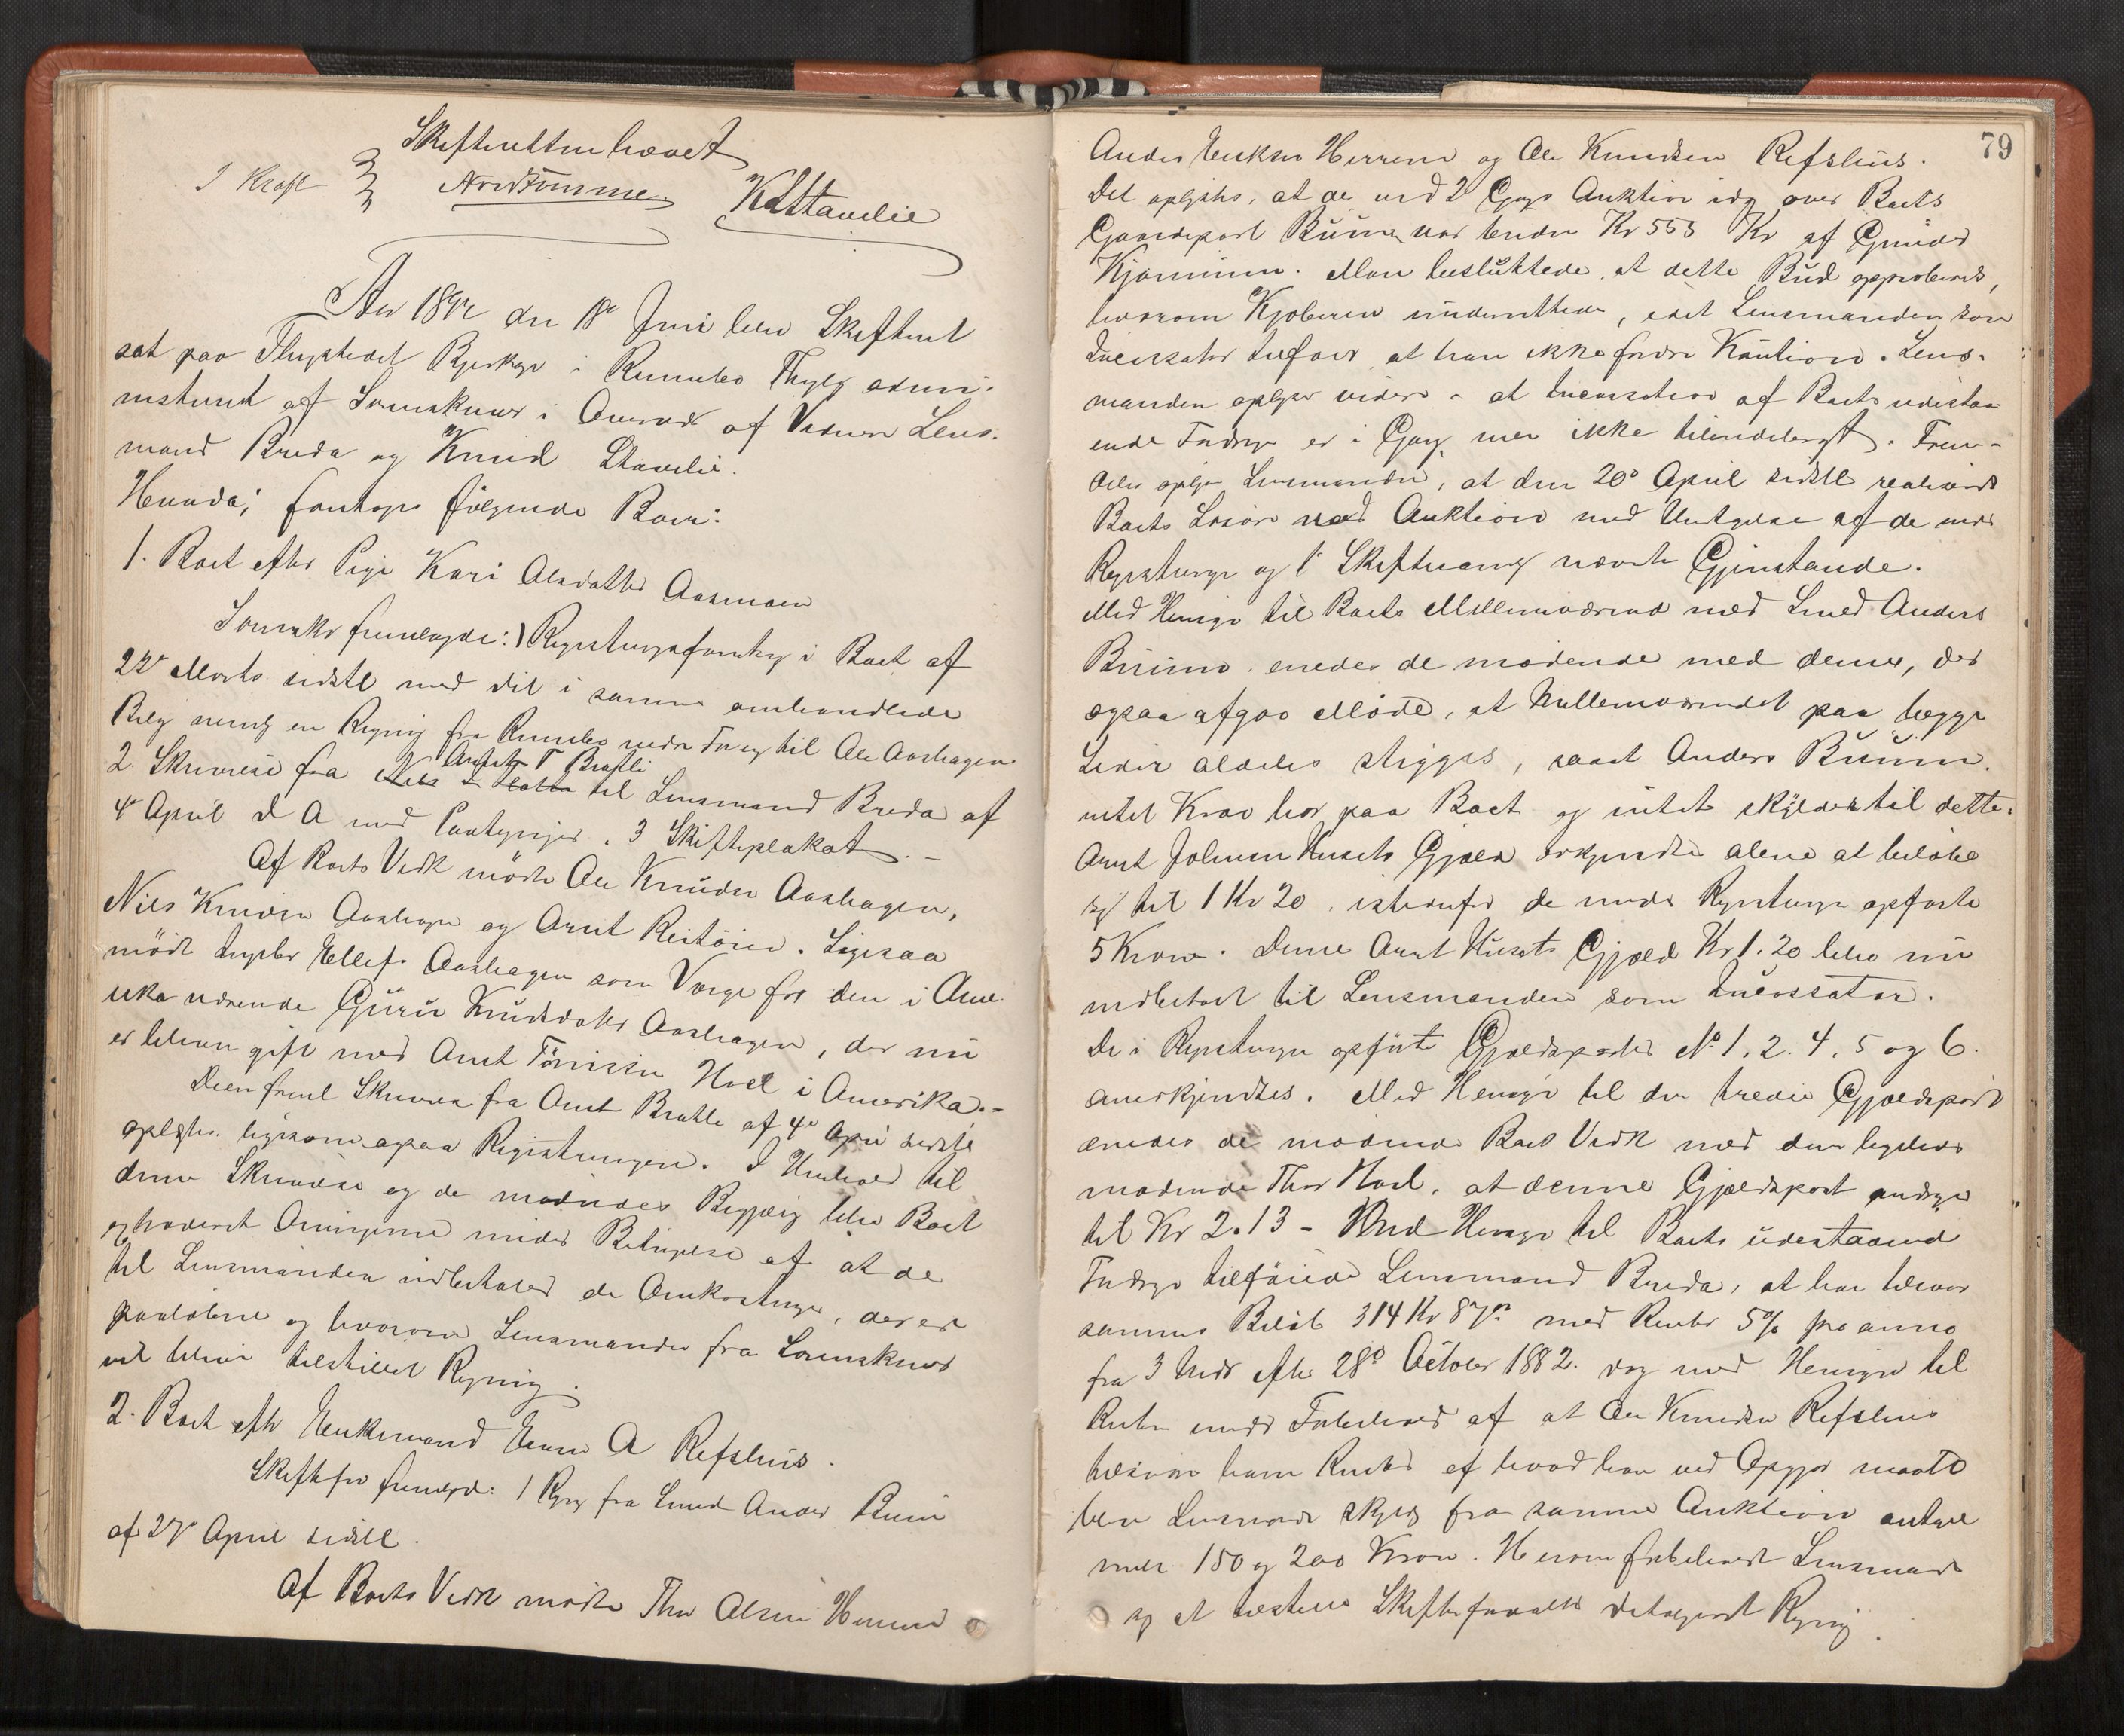 Skifteretten hævet
I Kraft Nordtømme KLStavelie
Aar 1892 den 18de Juni blev Skifteret
sat paa Thingstedet Bjerkager i Rennebo Thinglag admi-
nistreret af Sorenskriver i Overvær af Vidnerne Lens-
mand Breda og Knud Stavelie.
foretoges følgende Boer:
1. Boet efter Pige Kari Olsdatter Aasmoen
Sorenskr fremlagde: 1 Registreringsforretng i Boet af
22de Marts sidstl med det i samme omhandlede
Bilag nemlg en Regning fra Rennebo til Ole Aashagen.
2. Skrivelse fra Arnt T Bratli til Lensmand Breda af
4de April d A med Paategninger. 3 Skifteplakat. -
Af Boets Vedk mødte Ole Knudsen Aashagen,
Nils Knudsen Aashagen og Arnt Reitøien. Ligesaa
mødte Ellefs Aashagen som Værge for den i Ame-
rika værende Guru Knudsdatter Aashagen, der nu
er bleven gift med Arnt Tørrisen Hoel i Amerika. -
Den freml Skrivelse fra Arnt Bratli af 4de April sidstl
oplæstes ligesom ogsaa Registreringen. I Henhold til
denne Skrivelse og de mødendes Begjæring blev Boet
extraderet Arvingerne under Betingelse af at de
til Lensmanden indbetaler de Omkostninger, der er
paaløbne og hvorom Lensmanden fra Sorenskriver
vil blive tilstillet Regning.
2. Boet efter Enkemand A Refshus.
Skiftefor fremlagde: 1 Regng fra Smed Anders Buine
af 27de April sidstl.
Af Boets Vedk mødte Thor Olsen
79
Anders Eriksen Herrem og Ole Knudsen Refshus.
Det oplystes, at der ved 2 Gangs Auktion idag over Boets
Gaardepart var budt Kr 555 Kr af
Man besluttede, at dette Bud approberes,
hvorom Kjøberen underrettedes, idet Lensmanden som
Incassator tilføier at han ikke fordrer Kaution. Lens-
manden oplyser videre at Incassation af Boets udestaa-
ende Fordringer er i Gang, men ikke tilendebragt. Frem-
deles oplyser Lensmanden, at den 20de April sidstl realiserede
Boets Løsøre ved Auktion med Undtagelse af de under
Registreringen og 1 Skiftesamling nævnte Gjenstande.
Med Hensyn til Boets Mellemværende med Smed Anders
enedes de mødende med denne, der
ogsaa afgav Møde, at Mellemværendet paa begge
Sider aldeles stryges, saaat Anders
intet Krav har paa Boet og intet skylder til dette.
Arnt Johnsen Husets Gjæld erkjendtes alene at beløbe
sig til 1 Kr 20, istedenfor de under Registreringen opførte
5 Kroner. Denne Arnt Husets Gjæld Kr 1.20 blev nu
indbetalt til Lensmanden som Incassator.
De i Registreringen opførte Gjældsposter No 1. 2. 4. 5 og 6.
anerkjendtes. Med Hensyn til den tredie Gjældspost
enedes de mødende Boets Vedk med den ligeledes
mødende Thor Hoel, at denne Gjældspost andrager
til Kr 2.13 - Med Hensyn til Boets udestaaende
Fordringer tilføiede Lensmand Breda, at han tilsvar
sammes Beløb 314 Kr 87 med Renter 5% pro anno
fra 3 Mdr efter 28de October 1882. dog med Hensyn til
Renten under Forbehold af at Ole Knudsen Refshus
tilsvarer ham Renter af hvad han ved Opgjør maatte
blive Lensmanden skyldig fra samme Auktion antagel
mellem 150 og 200 Kroner. Herom forbeholdt Lensmanden
sig at tilstille Skifteforvalter detaljeret Regning.